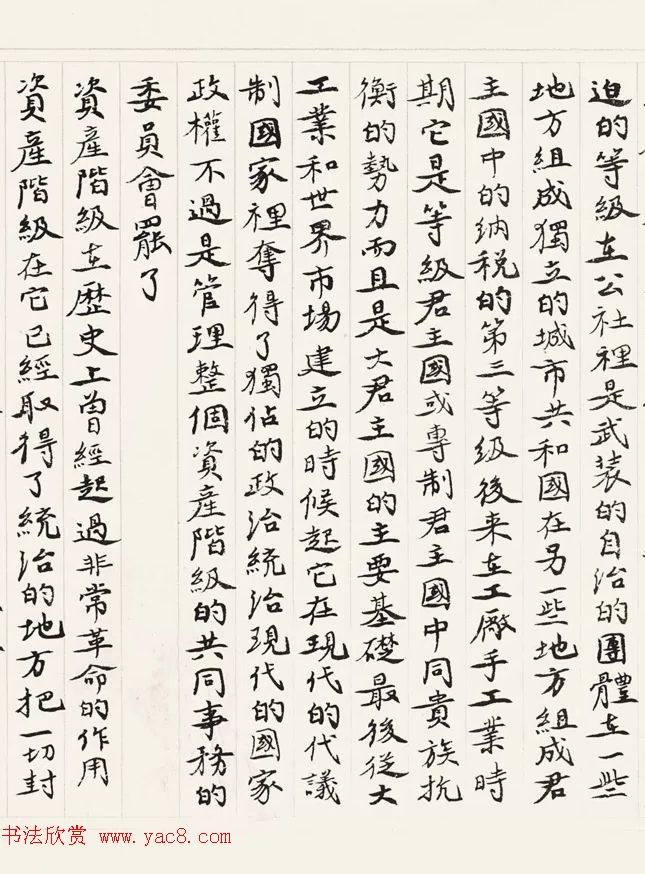 迫的等級在公社裡是武装的自治的團體在一些
地方組成獨立的城市共和國在另一些地方組成君
主國中的纳税的第三等級後来在工廠手工業時
期它是等級君主國或專制君主國中同貴族抗
衡的勢力而且是大君主國的主要基礎最後從大
工業和世界市場建立的時候起它在現代的代議
制國家裡奪得了獨佔的政治統治現代的國家
政權不過是管理整個資産階級的共同事務的
委員會罷了
資産階級在歷史上曾經起過非常革命的作用
資産階級在它已經取得了統治的地方把一切封
书法欣赏 www.yac8.com